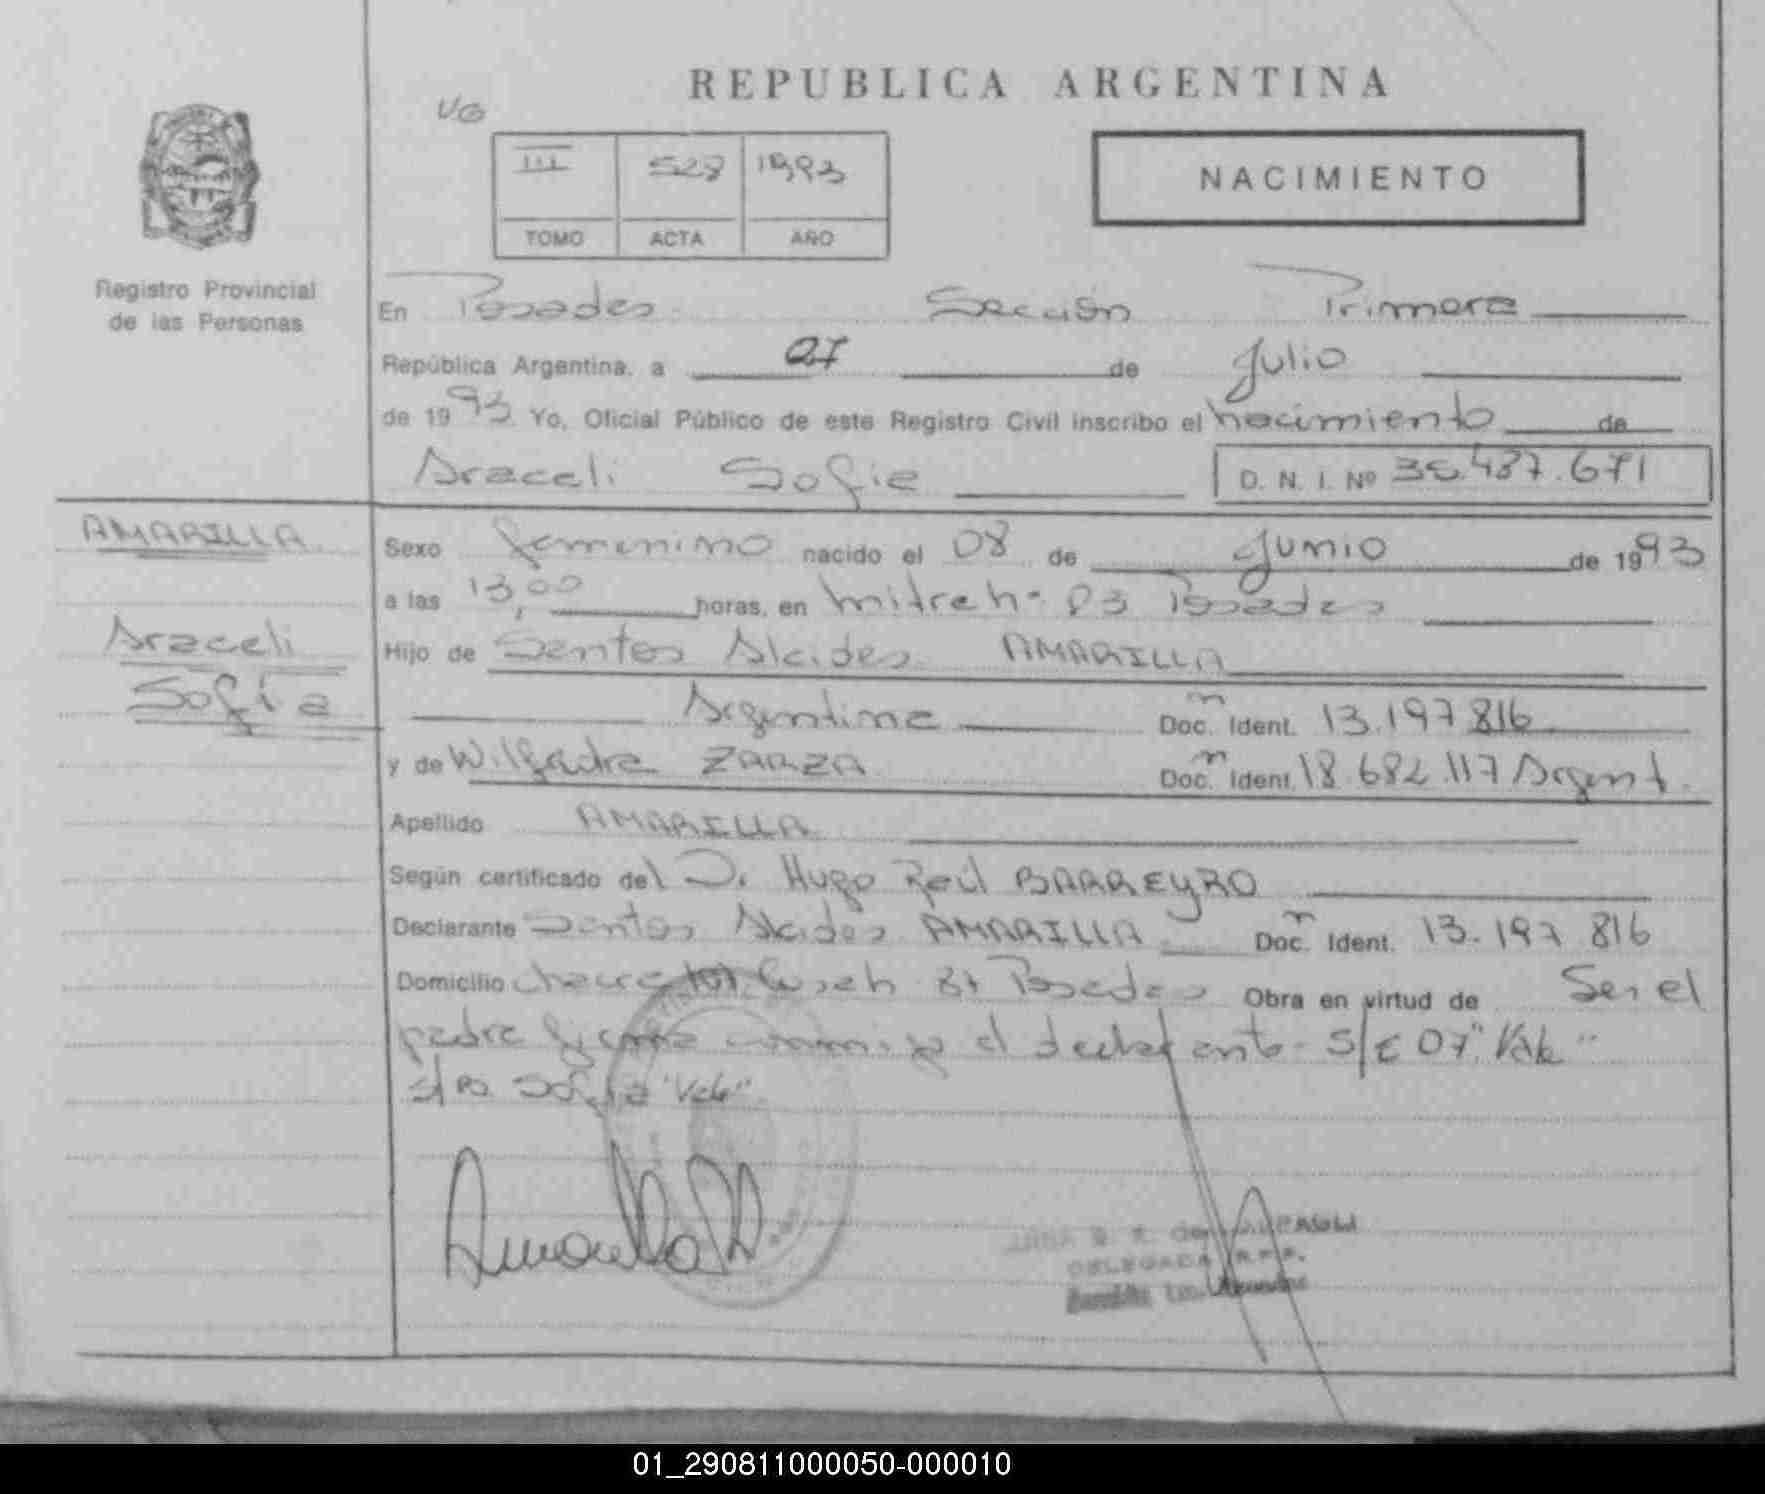 REPUBLICA ARGENTINA
VG
III 528 1993
TOMO ACTA AÑO
NACIMIENTO
Registro Provincial
de las Personas
En Posadas Sección Primera
República Argentina, a 07 de Julio
de 1993. Yo, Oficial Público de este Registro Civil inscribo el nacimiento de
Araceli Sofia D. N. I. Nº 437.671
AMARILLA
Araceli
Sofia
Sexo femenino nacido el 08 de Junio de 1993
a las 13,00 horas, en Posadas
Hijo de Santos Alcides AMARILLA
Argentina Doc. Ident. 13.197.816
y de ZARZA Doc. Ident. 18.682.117 Argent.
Apellido AMARILLA
Según certificado del Dr. Hugo Raúl BARREYRO
Declarante Santos Alcides AMARILLA Doc. Ident. 13.197.816
Domicilio Posadas Obra en virtud de Ser el
padre firma conmigo el declarante- S/E 07 "Vale"
Sofia "Vale".
DELEGADA R.P.P.
01_290811000050-000010